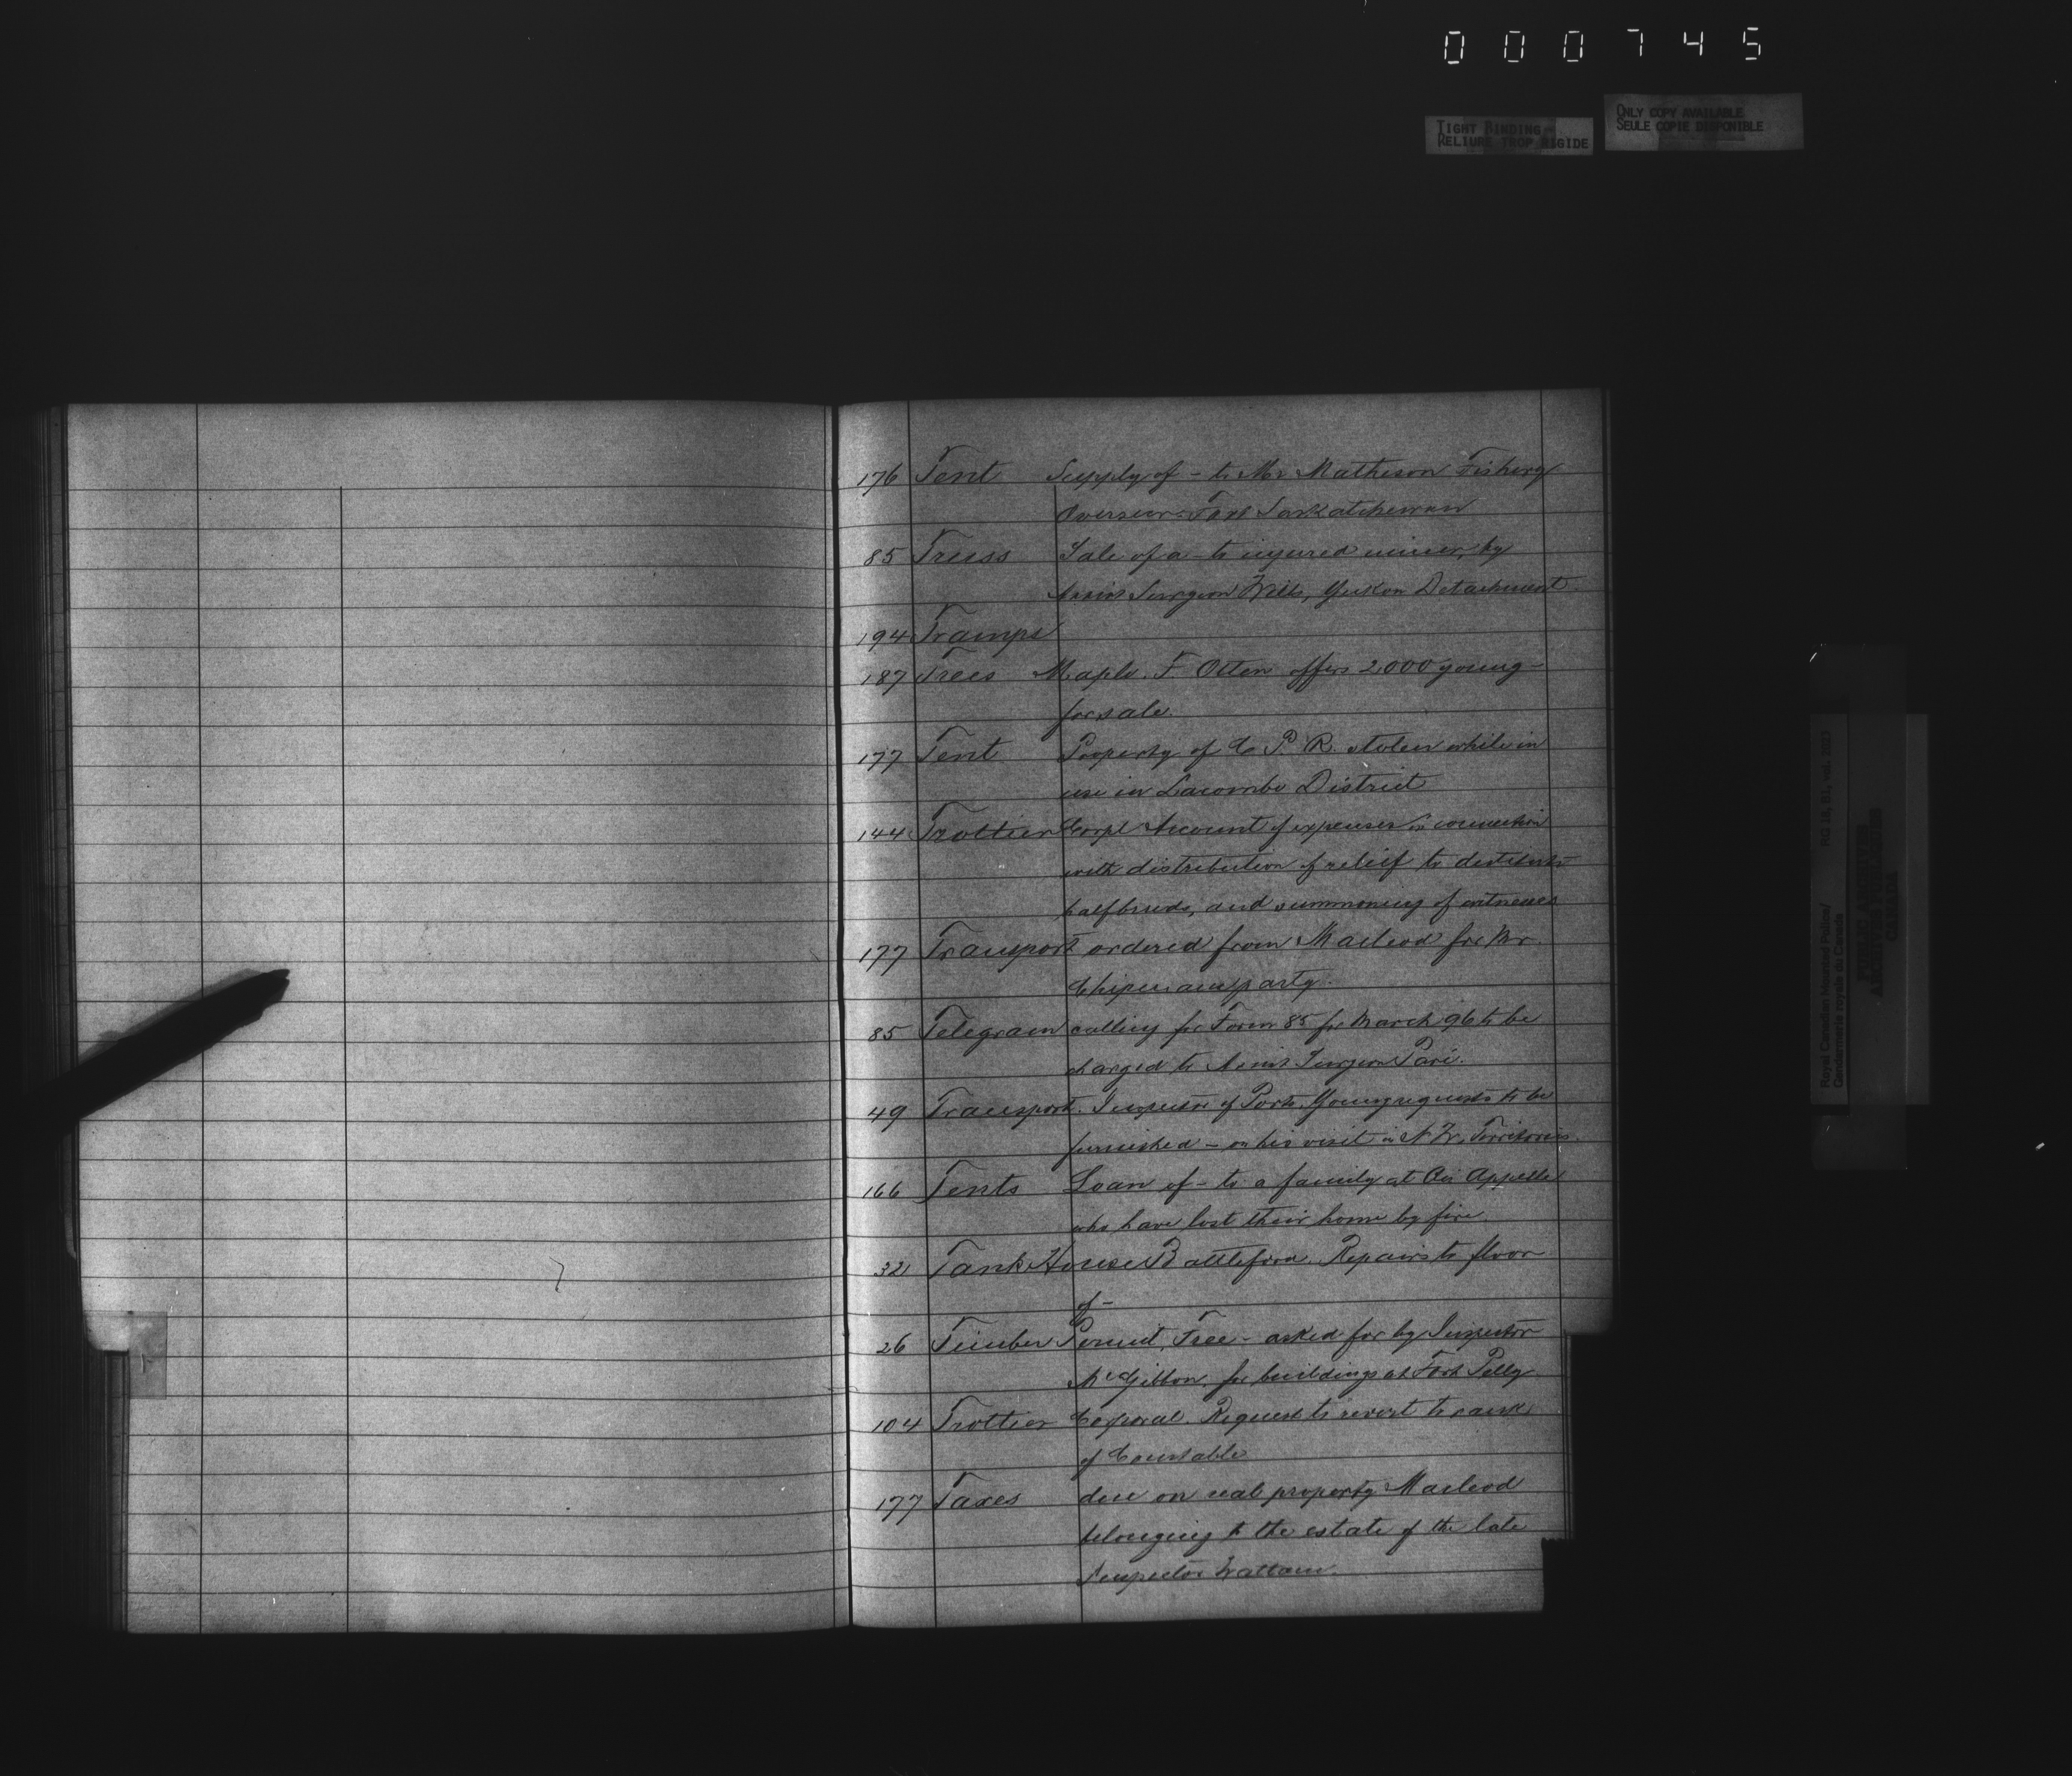 000745
TIGHT BINDING
RELIURE TROP RIGIDE
ONLY COPY AVAILABLE
SEULE COPIE DISPONIBLE
176 Tent Supply of - to Mr Matheson Fishery
Overseer. Fort Saskatchewan
85 Truss Sale of a - to injured miner, by
Assist Surgeon Wills, Yukon Detachment
194 Tramps
187 Trees Maple. F. Otten offers 2000 young -
for sale.
177 Tent Property of C. P. R. stolen while in
use in Lacombe District
144 Trottier Corpl Account of expenses in connection
with distribution of relief to destitute
halfbreeds, and summoning of witnesses
177 Transport ordered from Macleod for Mr.
Chipman party.
85 Telegram calling for Form 85 for March 96 to be
charged to Assist Surgeon Paré.
49 Transport. Inspector of Ports, Young requests to be
furnished - on his visit in N. W. Territories.
166 Tents Loan of - to a family at Qu Appelle
who have lost their home by fire.
32 Tank House Battleford. Repairs to floor
of -
26 Timber Permit, Free - asked for by Inspector
McGibbon, for buildings at Fort Pelly
104 Trottier Corporal Request to revert to rank
of Constable
177 Taxes due on real property Macleod
belonging to the estate of the late
Inspector Wattam.
Royal Canadian Mounted Police/
Gendarmerie royale du Canada
RG 18, B1, vol. 2023
PUBLIC ARCHIVES
ARCHIVES PUBLIQUES
CANADA